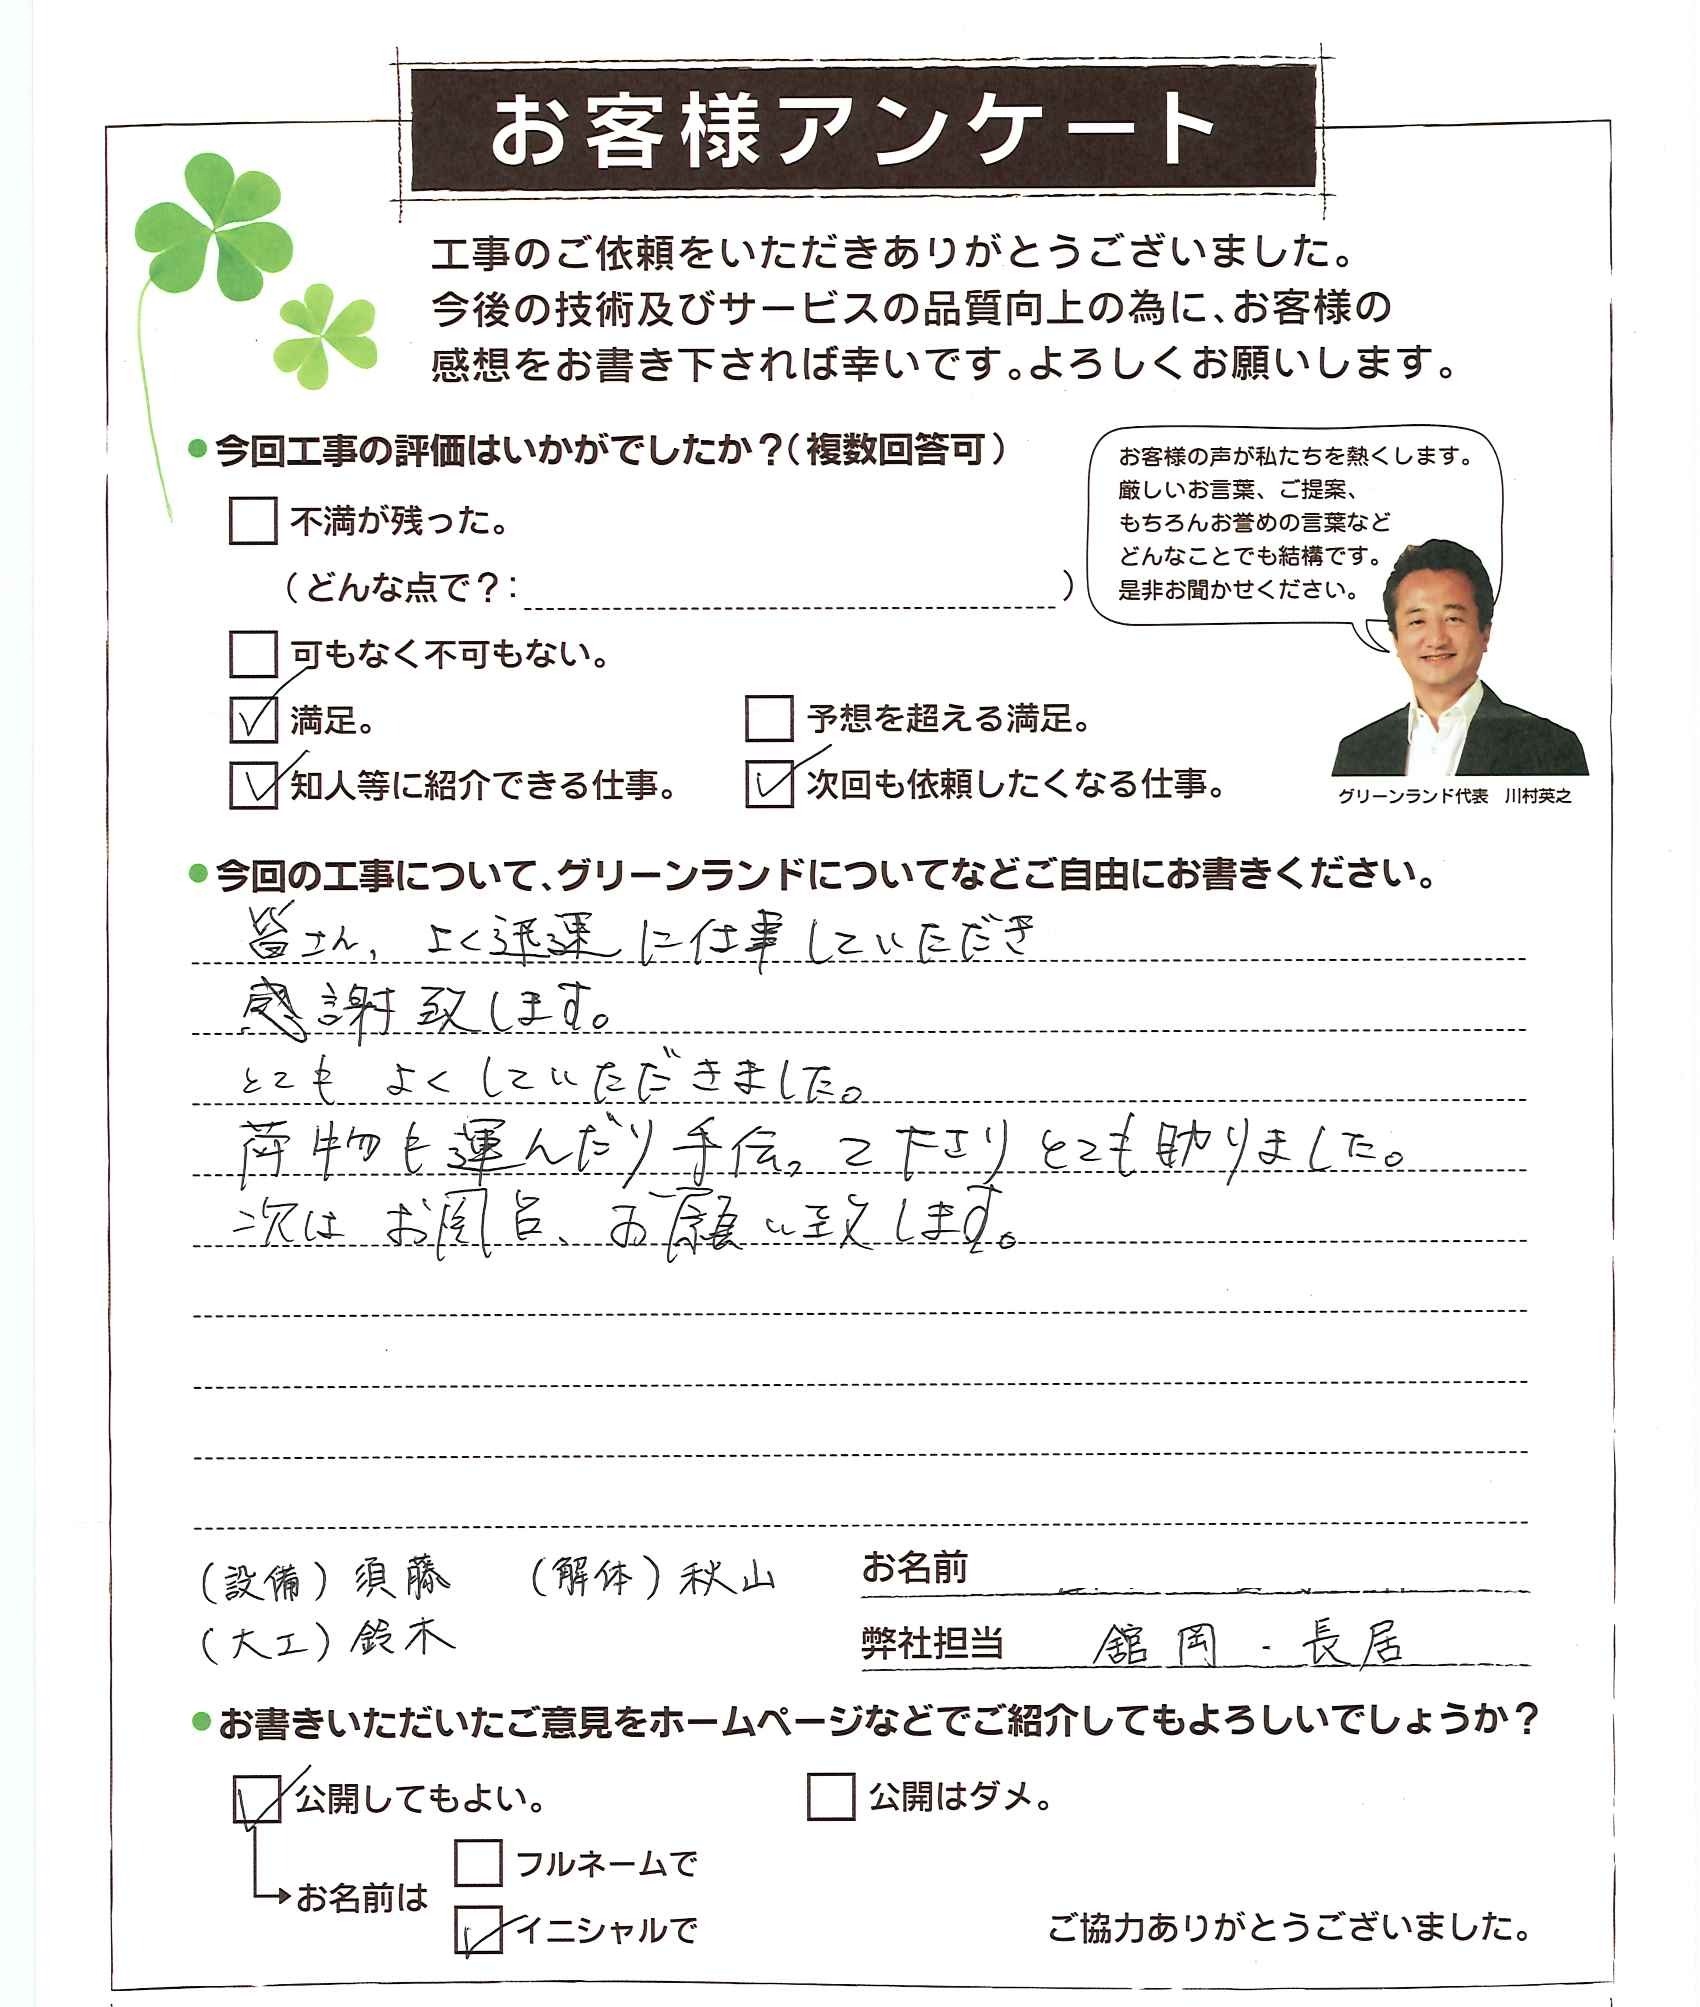 お客様アンケート
工事のご依頼をいただきありがとうございました。
今後の技術及びサービスの品質向上の為に、お客様の
感想をお書き下されば幸いです。よろしくお願いします。
●今回工事の評価はいかがでしたか？（複数回答可）
不満が残った。
（どんな点で？：　　　）
可もなく不可もない。
満足。
予想を超える満足。
知人等に紹介できる仕事。
次回も依頼したくなる仕事。
お客様の声が私たちを熱くします。
厳しいお言葉、ご提案、
もちろんお誉めの言葉など
どんなことでも結構です。
是非お聞かせください。
グリーンランド代表　川村英之
●今回の工事について、グリーンランドについてなどご自由にお書きください。
皆さん、よく迅速に仕事していただき
感謝致します。
とてもよくしていただきました。
荷物も運んだり手伝って下さりとても助りました。
次はお風呂、お願い致します。
（設備）須藤　（解体）秋山
（大工）鈴木
お名前
弊社担当　舘岡・長居
●お書きいただいたご意見をホームページなどでご紹介してもよろしいでしょうか？
公開してもよい。
公開はダメ。
お名前は
フルネームで
イニシャルで
ご協力ありがとうございました。